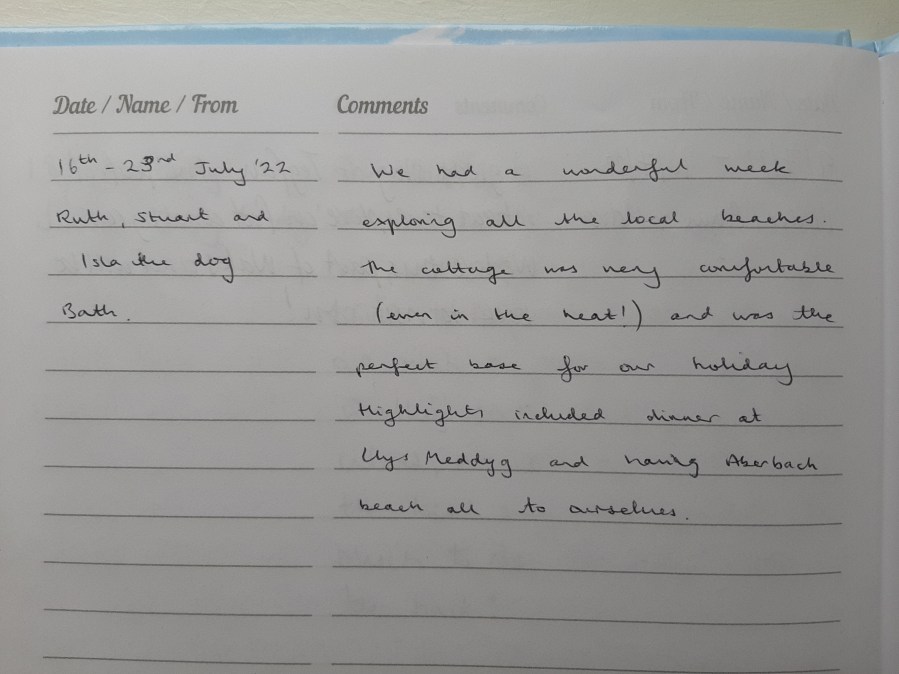 Date / Name / From
Comments
16th - 23rd July '22
Ruth, Stuart and
Isla the dog
Bath.
We had a wonderful week
exploring all the local beaches.
The cottage was very comfortable
(even in the heat!) and was the
perfect base for our holiday
Highlights included dinner at
Llys Meddyg and having Aberbach
beach all to ourselves.